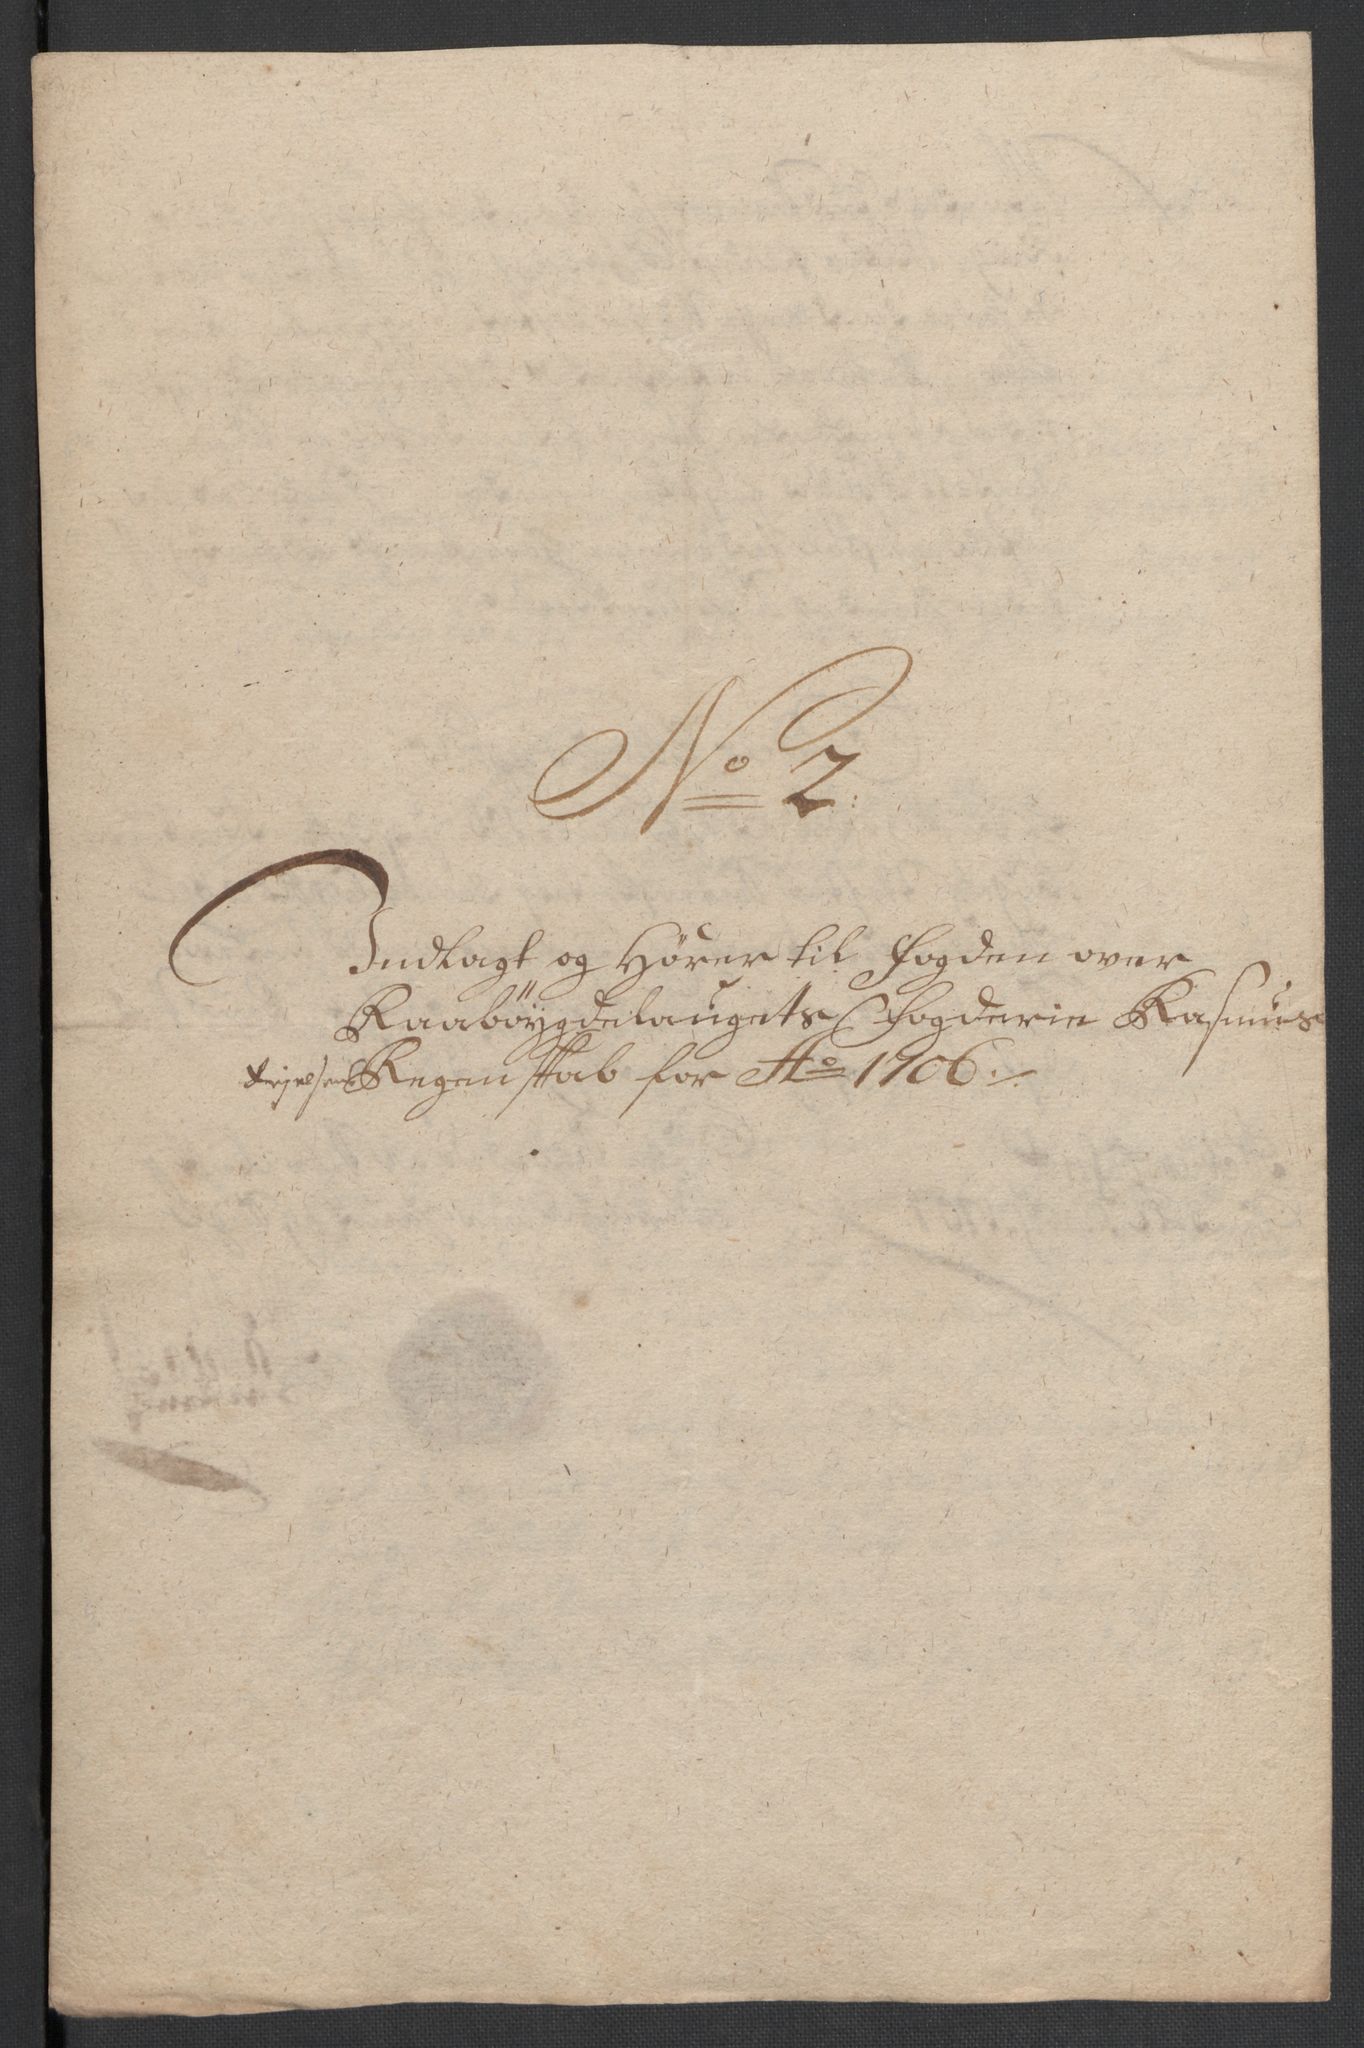 No 2
Indlagt og Hörer til Fogden over
Raaböygdelaugets Fogderie Rasmus
Regenskab for Ao 1706 ./.